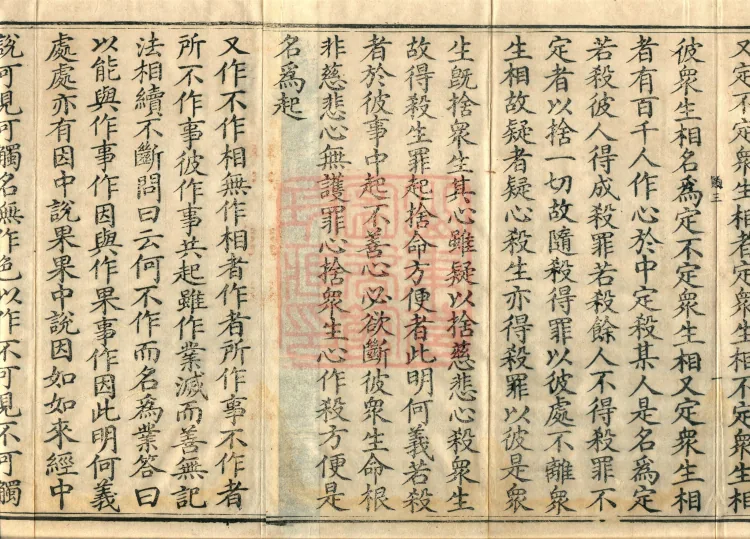 又定不定衆生相者定衆生相不定衆生相
彼衆生相名爲定不定衆生相又定衆生相
者有百千人作心於中定殺某人是名爲定
若殺彼人得成殺罪若殺餘人不得殺罪不
定者以捨一切故隨殺得罪以彼處不離衆
生相故疑者疑心殺生亦得殺罪以彼是衆
生旣捨衆生其心雖疑以捨慈悲心殺衆生
故得殺生罪起捨命方便者此明何義若殺
者於彼事中起不善心必欲斷彼衆生命根
非慈悲心無護罪心捨衆生心作殺方便是
名爲起
又作不作相無作相者作者所作事不作者
所不作事彼作事共起雖作業滅而善無記
法相續不斷問曰云何不作而名爲業答曰
以能與作事作因與作果事作因此明何義
處處亦有因中說果果中說因如如來經中
說可見可觸名無作色以作不可見不可觸